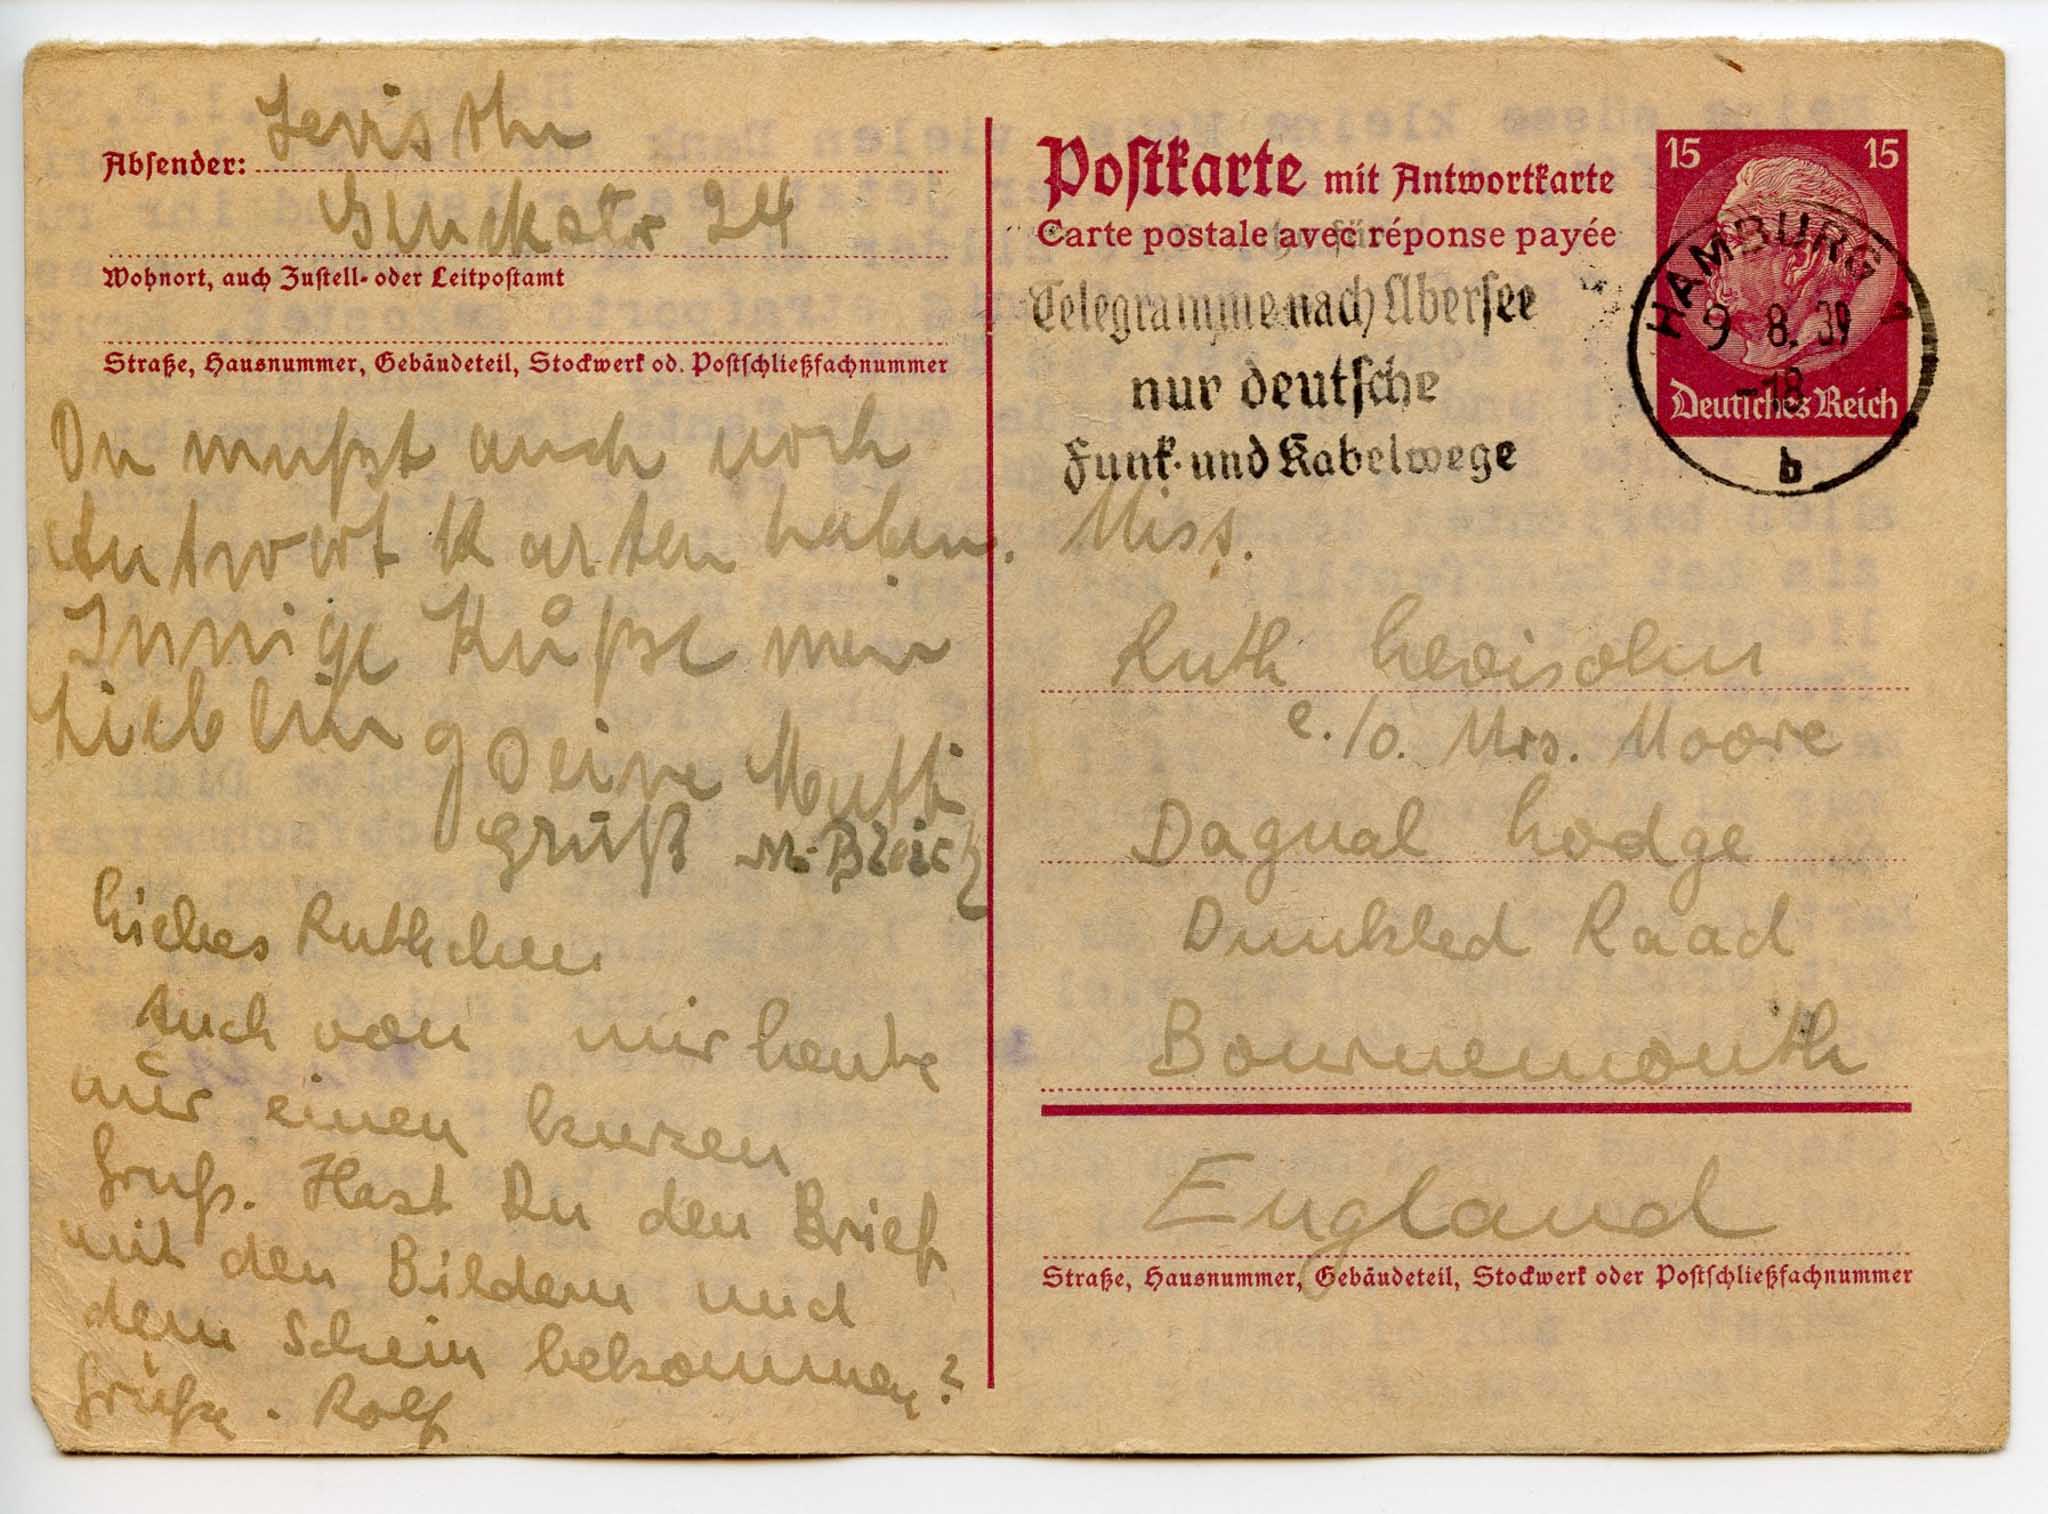 Absender: Levisohn
Wohnort, auch Zustell- oder Leitpostamt
Straße, Hausnummer, Gebäudeteil, Stockwerk od. Postschließfachnummer
Du mußt auch noch
Antwort Karten haben.
Innige Küße mein
Liebling Deine Mutti
Gruß M.
Liebes Ruthchen
Auch von mir heute
nur einen kurzen
Gruß. Hast Du den Brief
mit den Bildern und
dem Schein bekommen?
Grüße. Rolf
Postkarte mit Antwortkarte
Carte postale avec réponse payée
Telegramme nach Übersee
nur deutsche
Funk- und Kabelwege
15 15
HAMBURG
9.8.39
-18
Deutsches Reich
b
Miss.
Ruth Levisohn
c./o. Mrs. Moore
Dagual Lodge
Dunkled Raad
Bournemouth
England
Straße, Hausnummer, Gebäudeteil, Stockwerk oder Postschließfachnummer